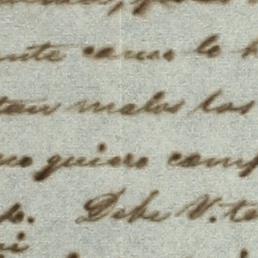 nte causa lo h
tan malos los
no quiero comp
do. Debe V. te